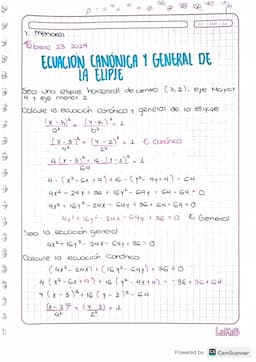 Febrero 23 2024
ECUACIÓN CANÓNICA Y GENERAL DE
LA ELIPSE
Sea una elipse horizontal de centro (3,2), eje mayor
4 y eje menor 2
Calcule la ecuación canónica y general de la elipse
(x-h)²/a² + (y-k)²/b² = 1
(x-3)²/4² + (y-2)²/2² = 1 Canónica
4(x-3)² + 16(y-2)² = 1
64
4x² - 24x + 36 + 16y² - 64y + 64 - 64 = 0
4x² + 16y² - 24x - 64y + 36 = 0 General
Sea la ecuación general
4x² + 16y² - 24x - 64y + 36 = 0
Calcule la ecuación canónica
(4x² - 24x) + (16y² - 64y) + 36 = 0
4(x² - 6x + 9) + 16(y² - 4y + 4) = -36 + 36 + 64
4(x-3)² + 16(y-2)² = 64
(x-3)²/4² + (y-2)²/2² = 1
Powered by CS CamScanner